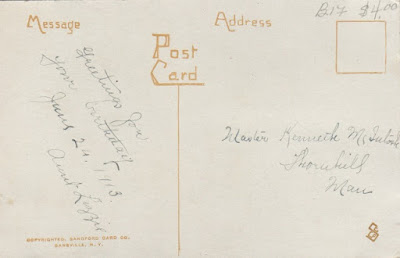 Message
Address
B17 $4.00
Post
Card
Greetings for
your birthday
June 24, 1913
Aunt Lizzie
Master Kenneth McIntosh
Thornhill
Man
COPYRIGHTED, SANDFORD CARD CO.
DANSVILLE, N.Y.